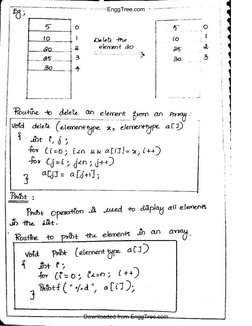 EnggTree.com
Eg:
5 0 5 0
10 1 Delete the 10 1
20 2 element 20 25 2
25 3 30 3
30 4
Routine to delete an element from an array.
Void delete (elementtype x, elementtype a[])
{ int i, j;
for (i=0; i<n && a[i]!=x, i++)
for (j=i; j<n; j++)
} a[j] = a[j+1];
Print:
Print operation is used to display all elements
in the list.
Routine to print the elements in an array.
Void Print (elementtype a[])
{ int i;
for (i=0; i<=n; i++)
Printf ("%d", a[i]);
}
Downloaded from EnggTree.com